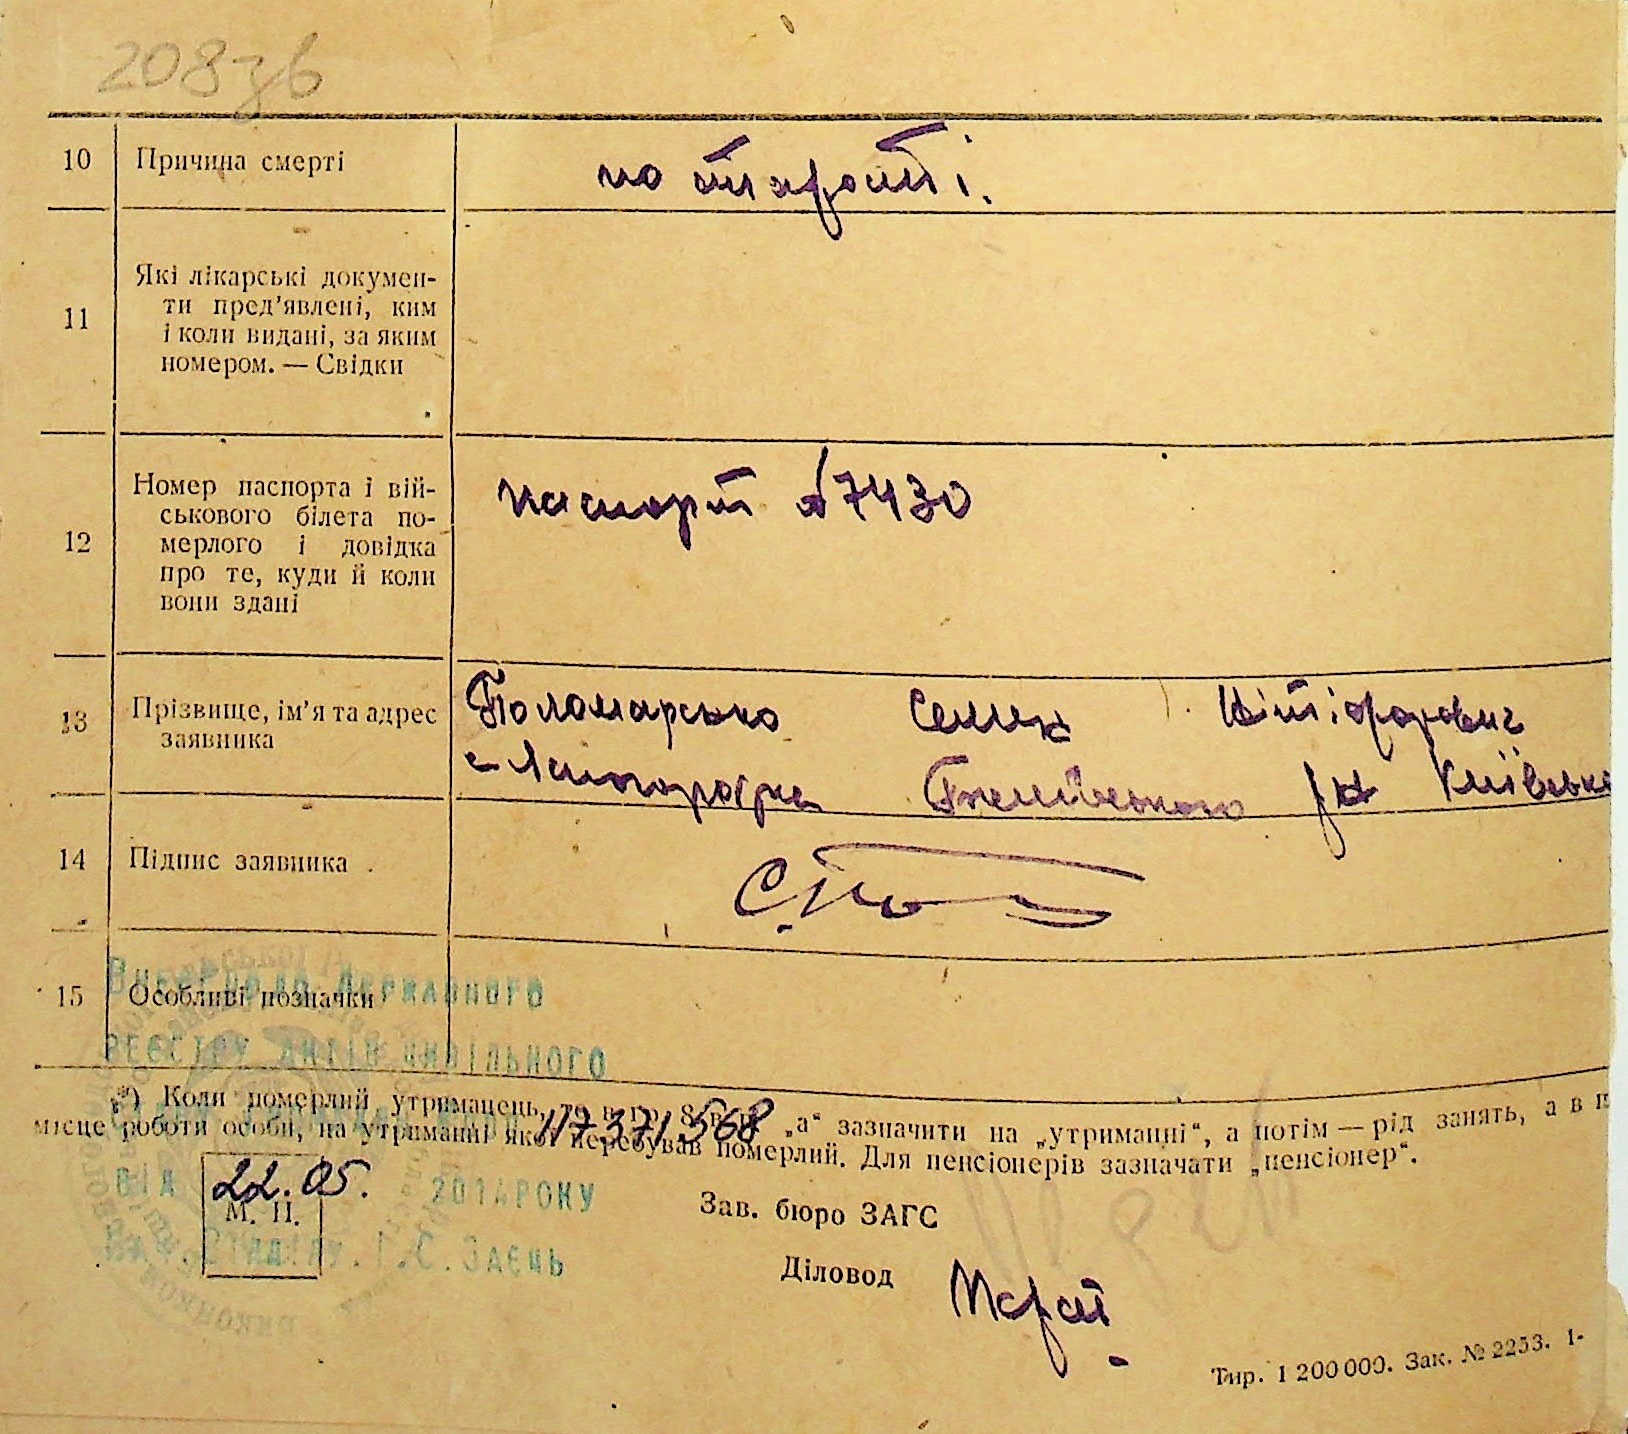 208зв
10 Причина смерті по старості.
11 Які лікарські докумен-
ти пред’явлені, ким
і коли видані, за яким
номером. — Свідки
12 Номер паспорта і вій- паспорт № 7430
ськового білета по-
мерлого і довідка
про те, куди й коли
вони здані
13 Прізвище, ім’я та адрес
заявника
Київсько
14 Підпис заявника
15 Особливі позначки
Внесено до Державного
реєстру актів цивільного
117371568
*) Коли померлий утриманець, то в гр. 8 „а“ зазначити на „утриманні“, а потім — рід занять, а в п
місце роботи особи, на утриманні якої перебував померлий. Для пенсіонерів зазначати „пенсіонер“.
від 22.05. 2014 року
М. П.
Г.С. Заєць
Зав. бюро ЗАГС
Діловод
Тир. 1 200 000. Зак. № 2253. 1-